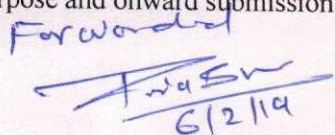 rpose and onward submission
Forwarded
6/2/19